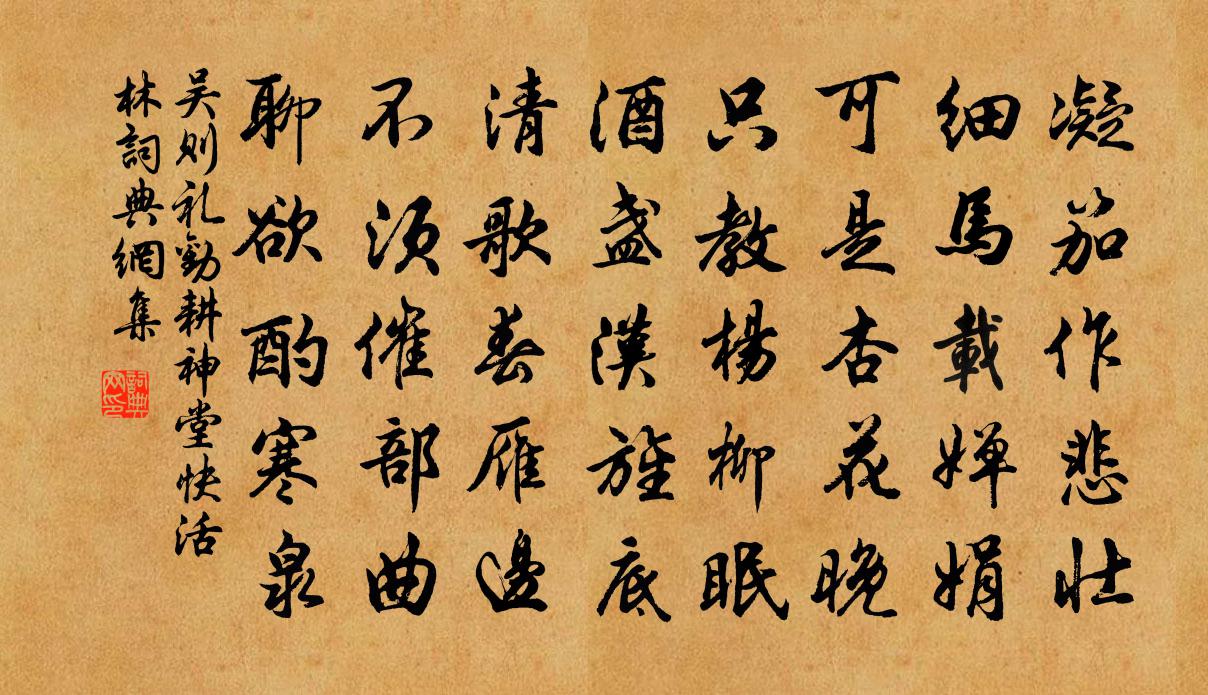 凝笳作悲壮
细馬載婵娟
可是杏花晚
只教楊柳眠
酒盏漢旌底
清歌春雁邊
不须催部曲
聊欲酌寒泉
吴则礼勸耕神堂快活
林詞典網集
詞典网印